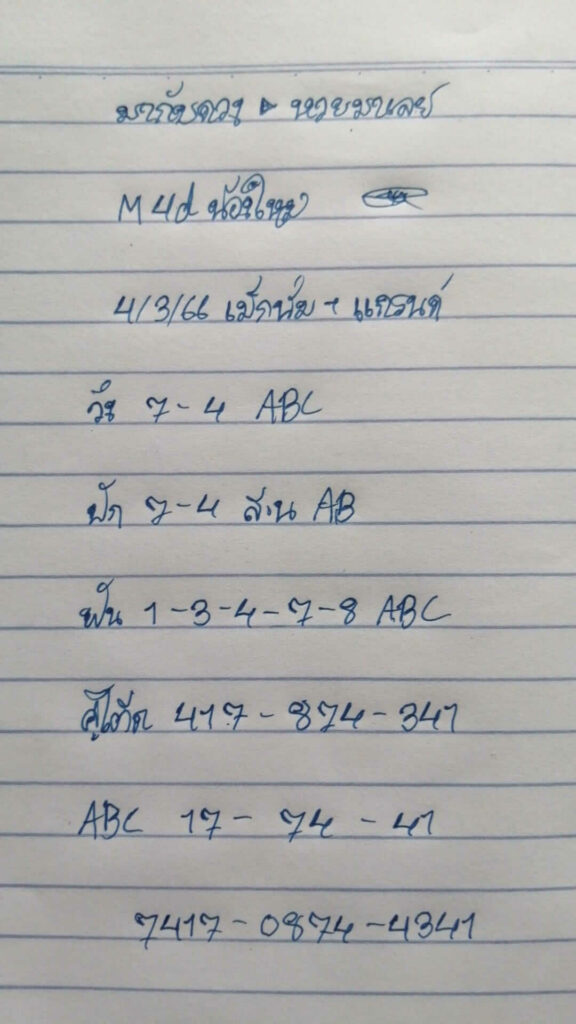 มากับดวง ▸ หวยมาเลย์
M 4d น้องใหม่
4/3/66 แม็กนั่ม + แกรนด์
วิ่ง 7-4 ABC
ปัก 7-4 ส-น AB
ฟัน 1-3-4-7-8 ABC
สู้โต๊ด 417-874-341
ABC 17- 74 - 41
7417-0874-4341